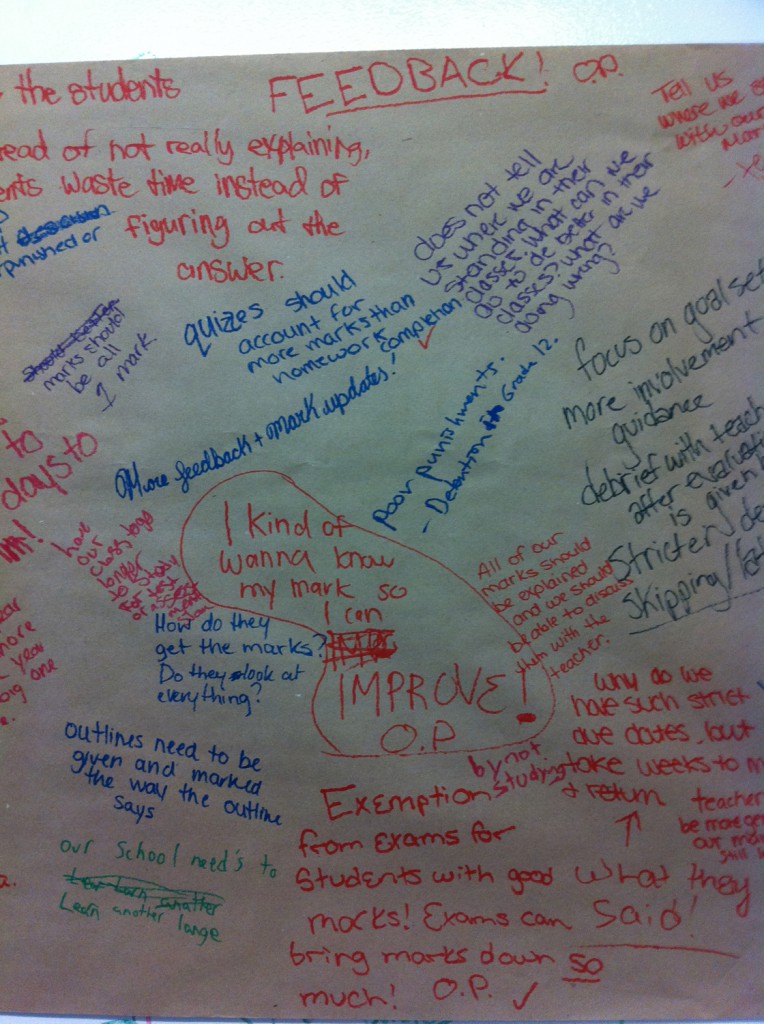 the students
FEEDBACK! O.P.
Tell us
where we
with our
read of not really explaining,
ents waste time instead of
figuring out the
answer.
punished or
does not tell
us where we are
standing in their
classes. what can we
do to do better in their
classes? what are we
doing wrong?
quizzes should
account for
more marks than
homework
completion.
marks should
be all
1 mark
focus on goal set
more involvement
guidance
debrief with teach
after evaluati
is given b
Stricter de
skipping/
More feedback + mark updates!
Poor punishments.
- Detention in Grade 12.
to
days to
have
our
class
longer
to study
for test
I kind of
wanna know
my mark so
I can
IMPROVE!
O.P
All of our
marks should
be explained
and we should
be able to discuss
them with the
teacher.
How do they
get the marks?
Do they look at
everything?
year
more
year
big one
outlines need to be
given and marked
the way the outline
says
our School need's to
Learn another lange
why do we
have such strict
due dates, but
take weeks to m
+ return
teacher
be more
our
↑
What they
Said!
by not
studying
Exemption
from exams for
Students with good
marks! Exams can
bring marks down so
much! O.P. ✓